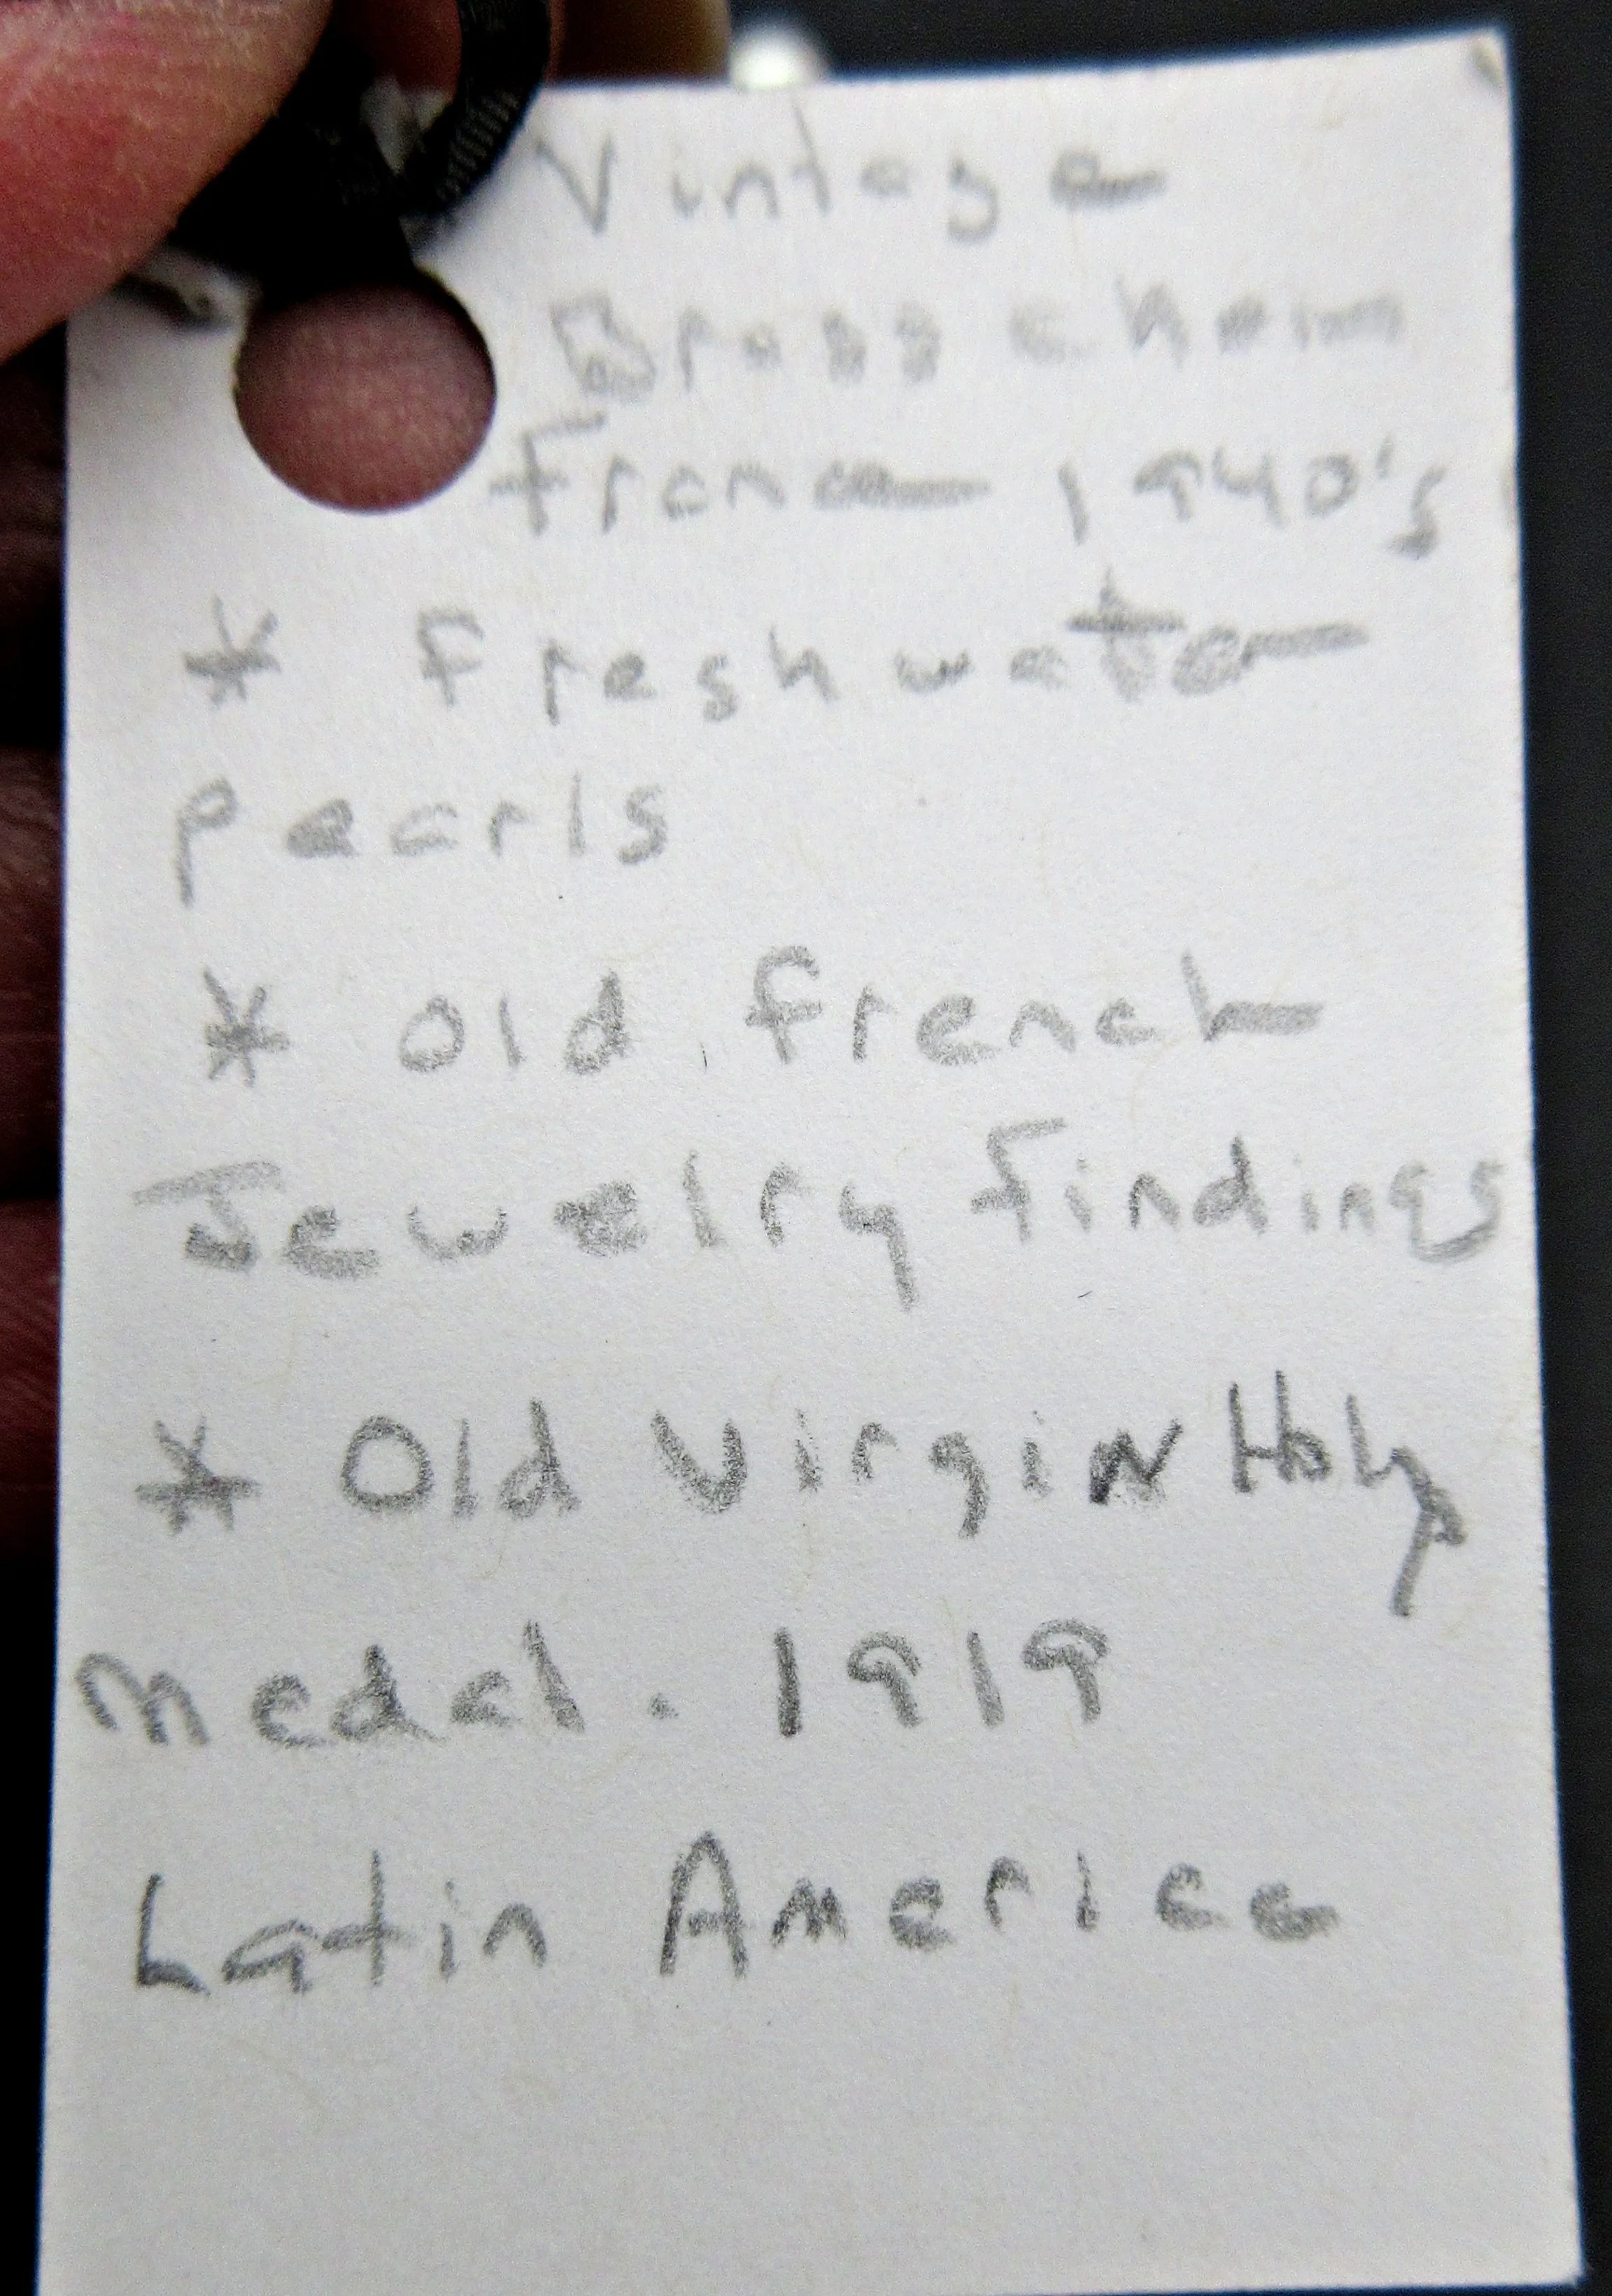 Vintage
Brass chain
France 1940's
* Freshwater
pearls
* Old French
Jewelry Findings
* Old Virgin Holy
Medal. 1919
Latin America